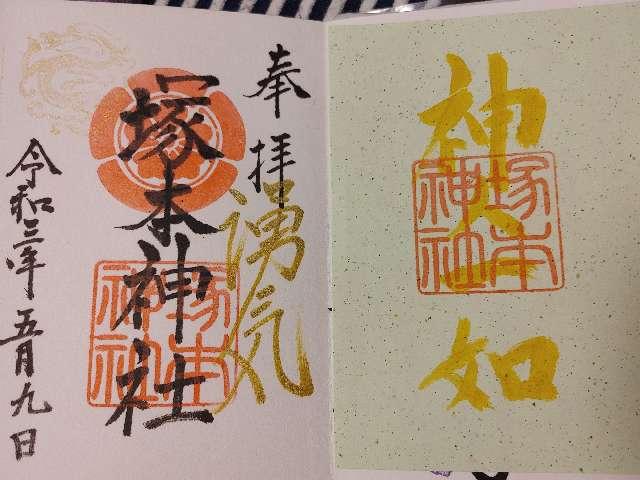 奉拝
湧気
塚本神社
塚本神社
令和三年五月九日
神人一如
塚本神社